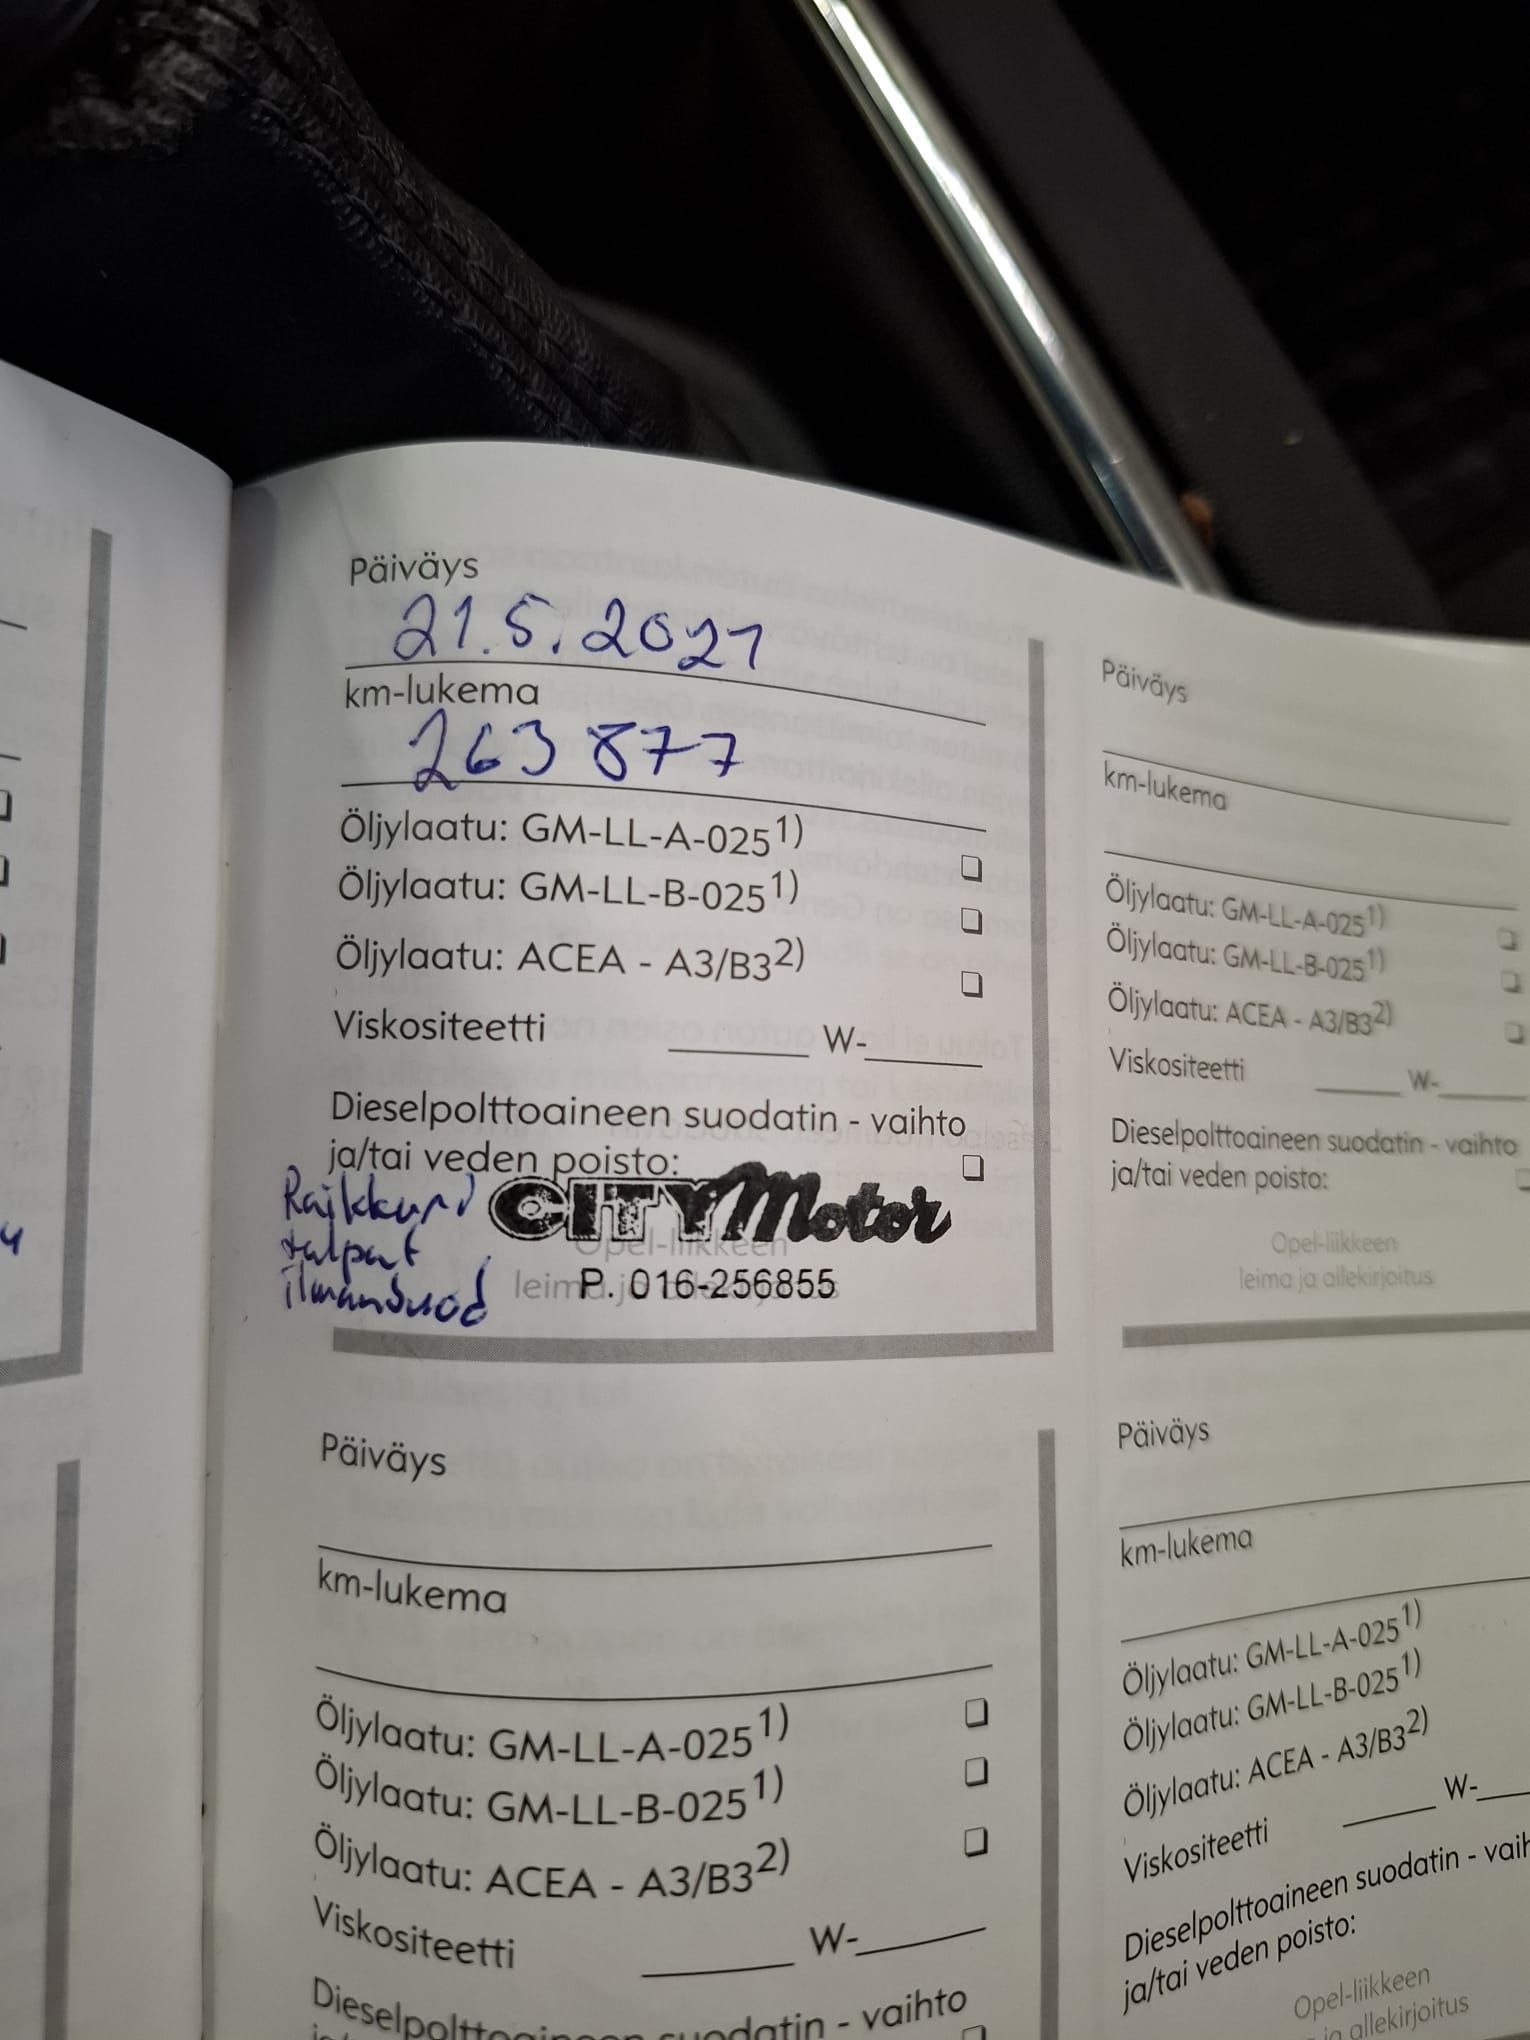 Päiväys
21.5.2021
km-lukema
263 877
Öljylaatu: GM-LL-A-025 1)
Öljylaatu: GM-LL-B-025 1)
Öljylaatu: ACEA - A3/B3 2)
Viskositeetti ______ W-______
Dieselpolttoaineen suodatin - vaihto
ja/tai veden poisto:
CITY Motor
Opel-liikkeen
leima ja allekirjoitus
P. 016-256855
Päiväys
km-lukema
Öljylaatu: GM-LL-A-025 1)
Öljylaatu: GM-LL-B-025 1)
Öljylaatu: ACEA - A3/B3 2)
Viskositeetti ______ W-______
Dieselpolttoaineen suodatin - vaihto
Päiväys
km-lukema
Öljylaatu: GM-LL-A-025 1)
Öljylaatu: GM-LL-B-025 1)
Öljylaatu: ACEA - A3/B3 2)
Viskositeetti ______ W-______
Dieselpolttoaineen suodatin - vaihto
ja/tai veden poisto:
Opel-liikkeen
leima ja allekirjoitus
Päiväys
km-lukema
Öljylaatu: GM-LL-A-025 1)
Öljylaatu: GM-LL-B-025 1)
Öljylaatu: ACEA - A3/B3 2)
Viskositeetti ______ W-____
Dieselpolttoaineen suodatin - vaih
ja/tai veden poisto:
Opel-liikkeen
ja allekirjoitus